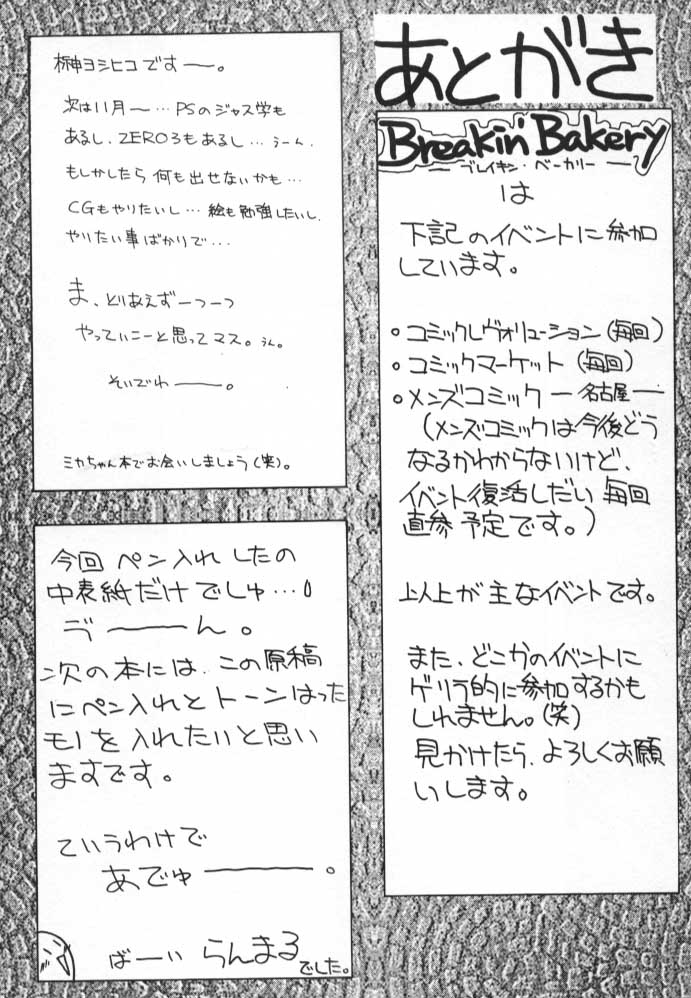 あとがき
Breakin' Bakery
ブレイキン・ベーカリー
は
下記のイベントに参加
しています。
○コミックレヴォリューション(毎回)
○コミックマーケット(毎回)
○メンズコミックー名古屋ー
(メンズコミックは今後どう
なるかわからないけど、
イベント復活しだい毎回
直参予定です。)
以上が主なイベントです。
また、どこかのイベントに
ゲリラ的に参加するかも
しれません。(笑)
見かけたら、よろしくお願
いします。
榊ヨシヒコですー。
次は11月ー…PSのジャス学も
あるし、ZERO3もあるし…うーん、
もしかしたら何も出せないかも…
CGもやりたいし…絵も勉強したいし、
やりたい事ばかりで…
ま、とりあえずーつーつ
やっていこーと思ってマス。うん。
そいでわー。
ミカちゃん本でお会いしましょう(笑)。
今回ペン入れしたの
中表紙だけでしゅ…
ゔーん。
次の本には、この原稿
にペン入れとトーンはった
モノを入れたいと思い
ますです。
ていうわけで
あでゅー。
ばーい らんまる
でした。